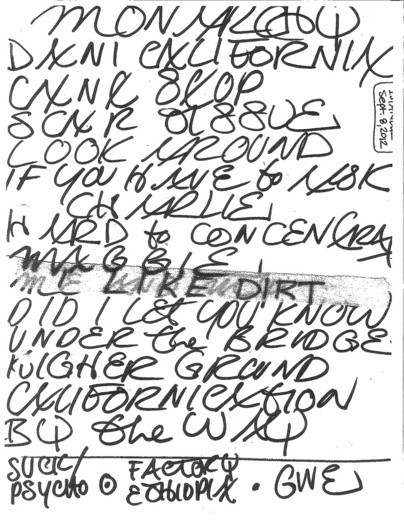 MONARCHY
DANI CALIFORNIA
CANT STOP
SCAR TISSUE
LOOK AROUND
IF YOU HAVE to ASK
CHARLIE
HARD to CONCENTRA
MAGGIE
ME LIKE DIRT
DID I LET YOU KNOW
UNDER the BRIDGE
HIGHER GROUND
CALIFORNICATION
BY the WAY
SUCK/ FACTORY
PSYCHO ⊙ ETHIOPIA • GWE
Sept. 8, 2012